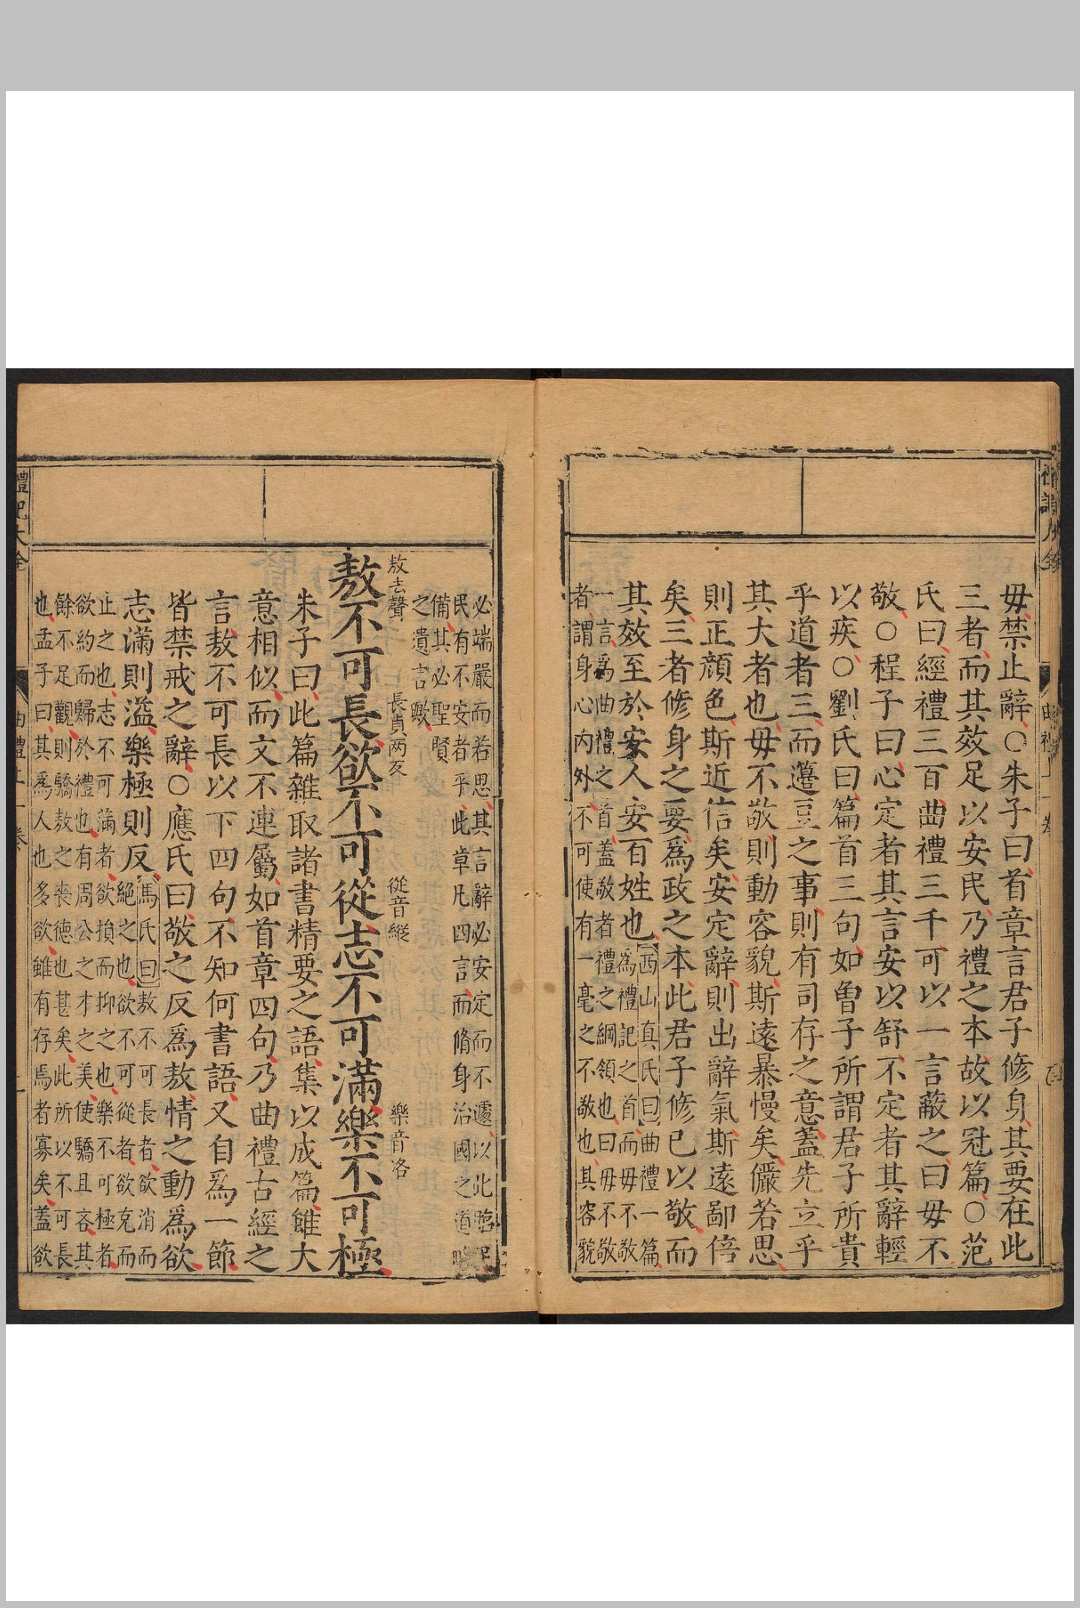 毋禁止辭○朱子曰首章言君子修身其要在此
三者而其效足以安民乃禮之本故以冠篇○范
氏曰經禮三百曲禮三千可以一言蔽之曰毋不
敬○程子曰心定者其言安以舒不定者其辭輕
以疾○劉氏曰篇首三句如曾子所謂君子所貴
乎道者三而籩豆之事則有司存之意蓋先立乎
其大者也毋不敬則動容貌斯遠暴慢矣儼若思
則正顔色斯近信矣安定辭則出辭氣斯遠鄙倍
矣三者修身之要爲政之本此君子修己以敬而
其效至於安人安百姓也
西山真氏曰曲禮一篇
爲禮記之首而毋不敬
一言爲曲禮之首蓋敬者禮之綱領也曰毋不敬
者謂身心内外不可使有一毫之不敬也其容貌
必端嚴而若思其言辭必安定而不遽以此臨
民有不安者乎此章凡四言而脩身治國之道
備其必聖賢
之遺言歟
敖去聲 長貞兩反 從音縱 樂音洛
敖不可長欲不可從志不可滿樂不可極
朱子曰此篇雜取諸書精要之語集以成篇雖大
意相似而文不連屬如首章四句乃曲禮古經之
言敖不可長以下四句不知何書語又自爲一節
皆禁戒之辭○應氏曰敬之反爲敖情之動爲欲
志滿則溢樂極則反
馬氏曰敖不可長者欲消而
絕之也欲不可從者欲克而
止之也志不可滿者欲損而抑之也樂不可極者
欲約而歸於禮也有周公之才之美使驕且吝其
餘不足觀則驕敖之喪德也甚矣此所以不可長
也孟子曰其爲人也多欲雖有存焉者寡矣蓋欲
禮記大全
曲禮上 一卷